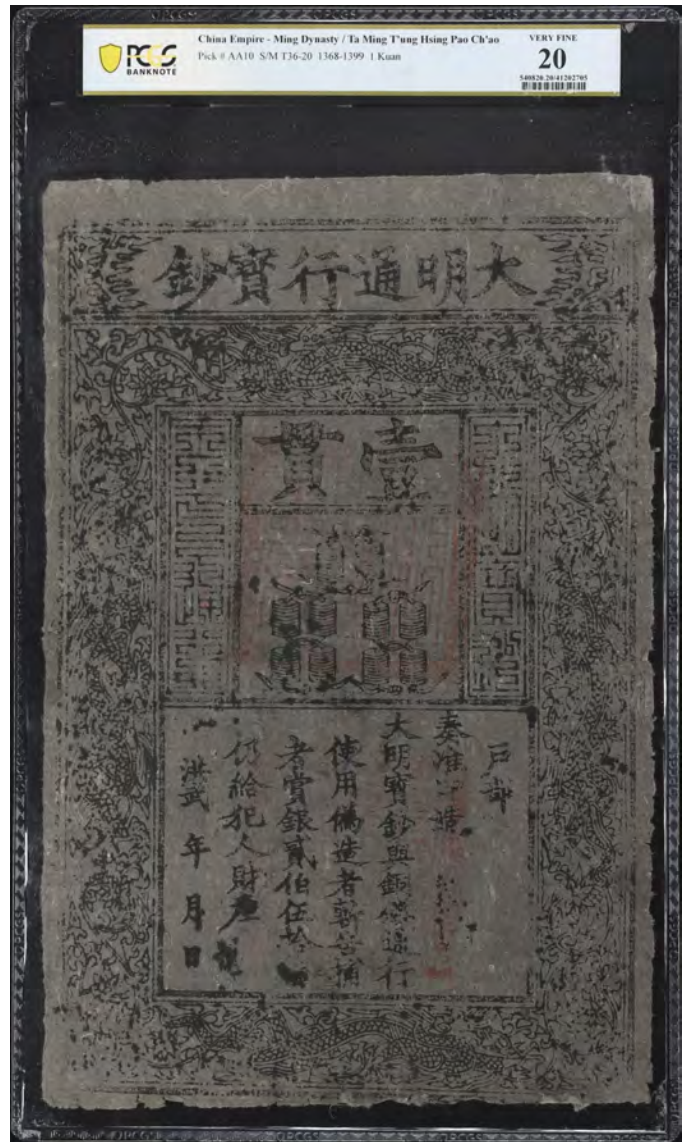 PCGS
BANKNOTE
China Empire - Ming Dynasty / Ta Ming T'ung Hsing Pao Ch'ao
Pick # AA10 S/M T36-20 1368-1399 1 Kuan
VERY FINE
20
540820.20/41202705
大明通行寳鈔
壹貫
户部
奏准
大明寳鈔與銅錢通行
使用偽造者斬告捕
者賞銀貳伯伍拾
仍給犯人財產
洪武 年 月 日